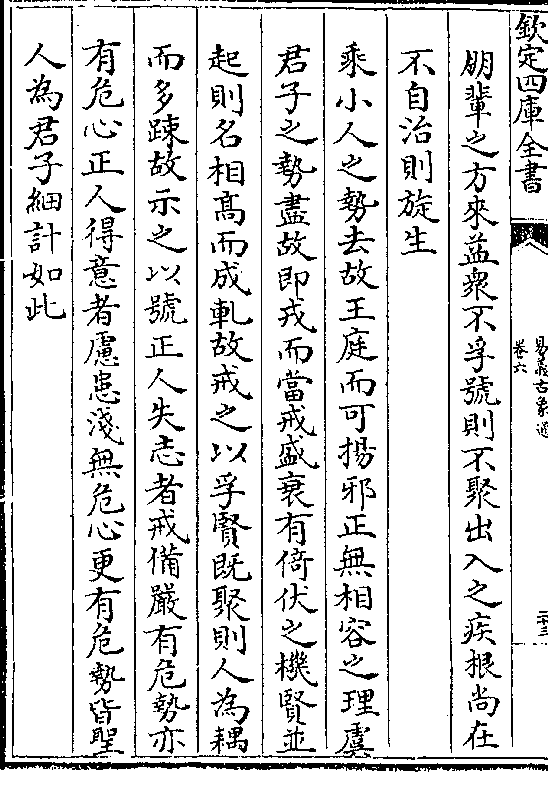 欽定四庫全書
易義古象通
卷六
二十三
朋輩之方來益衆不孚號則不聚出入之疾根尚在
不自治則旋生
乘小人之勢去故王庭而可揚邪正無相容之理虞
君子之勢盡故即戎而當戒盛衰有倚伏之機賢並
起則名相髙而成軋故戒之以孚賢既聚則人為耦
而多踈故示之以號正人失志者戒備嚴有危勢亦
有危心正人得意者慮患淺無危心更有危勢皆聖
人為君子細計如此